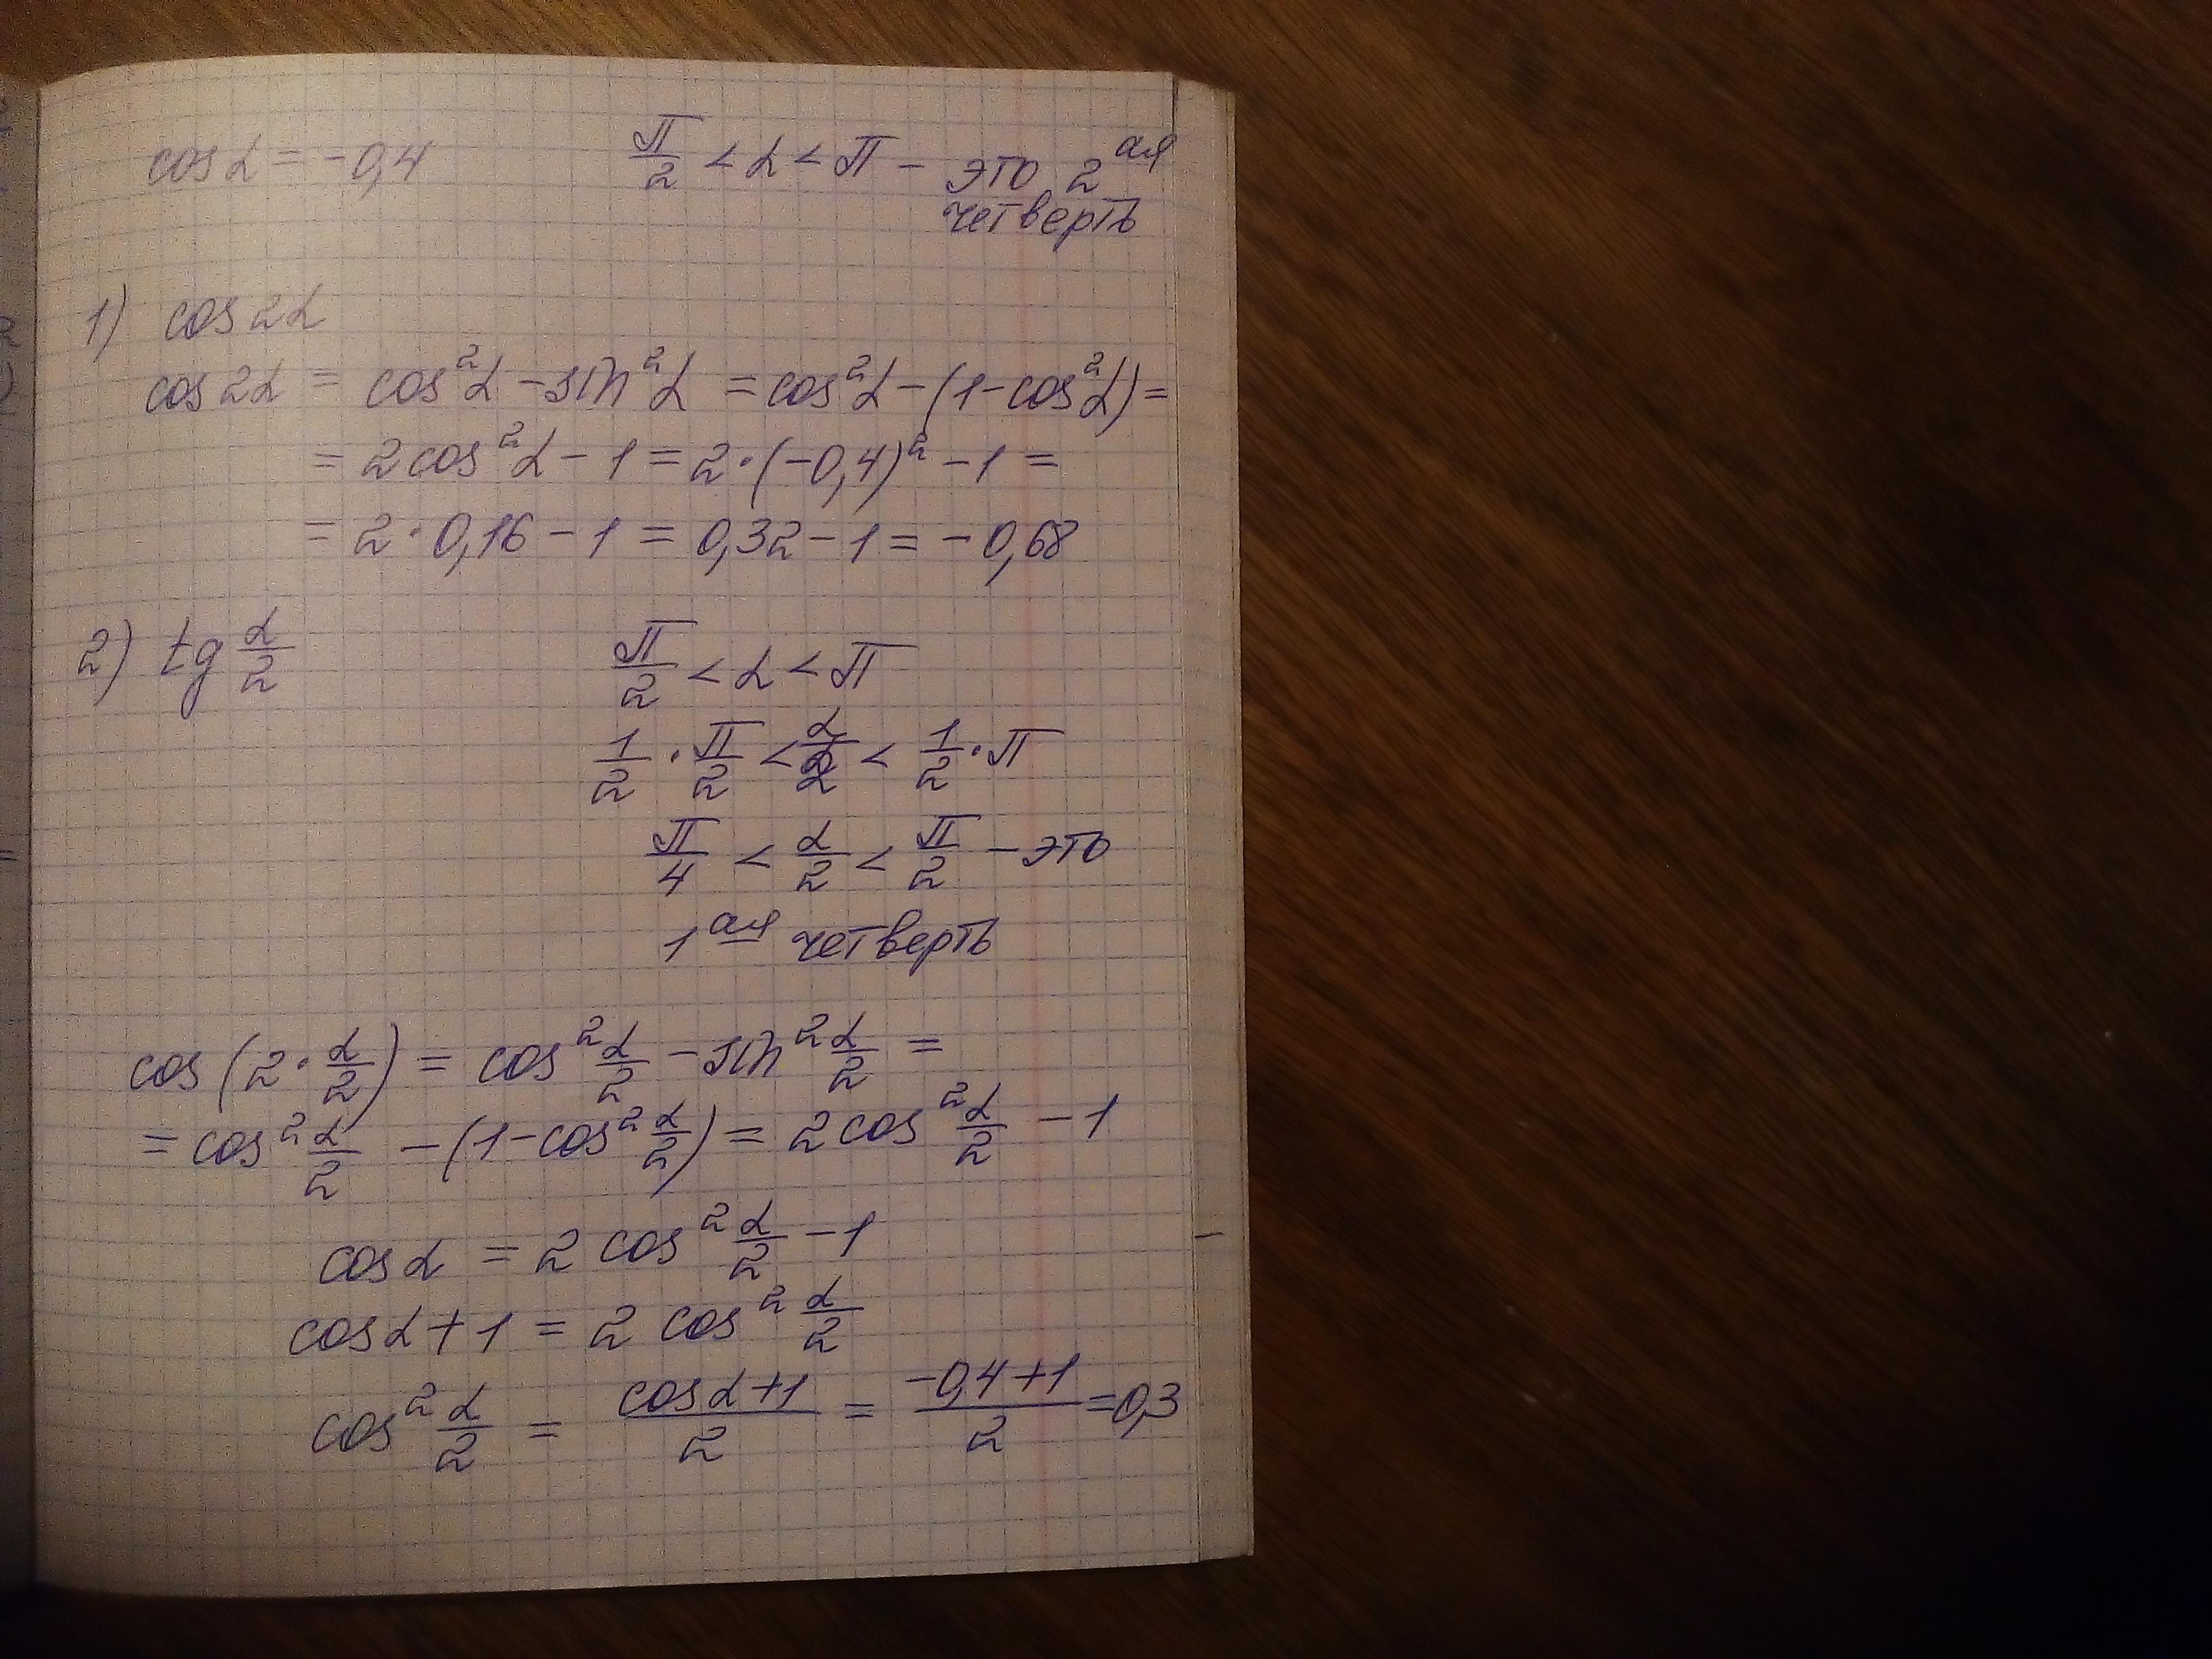 cos α = -0,4 π/2 < α < π - это 2ая
четверть
1) cos 2α
cos 2α = cos²α - sin²α = cos²α - (1 - cos²α) =
= 2 cos²α - 1 = 2·(-0,4)² - 1 =
= 2·0,16 - 1 = 0,32 - 1 = -0,68
2) tg α/2 π/2 < α < π
1/2 · π/2 < α/2 < 1/2 · π
π/4 < α/2 < π/2 - это
1ая четверть
cos (2·α/2) = cos² α/2 - sin² α/2 =
= cos² α/2 - (1 - cos² α/2) = 2 cos² α/2 - 1
cos α = 2 cos² α/2 - 1
cos α + 1 = 2 cos² α/2
cos² α/2 = (cos α + 1)/2 = (-0,4 + 1)/2 = 0,3